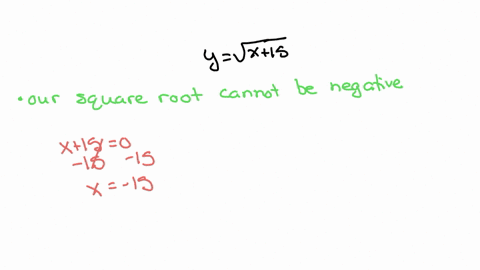 y=√x+15
• our square root cannot be negative
x+15=0
-15 -15
x=-15